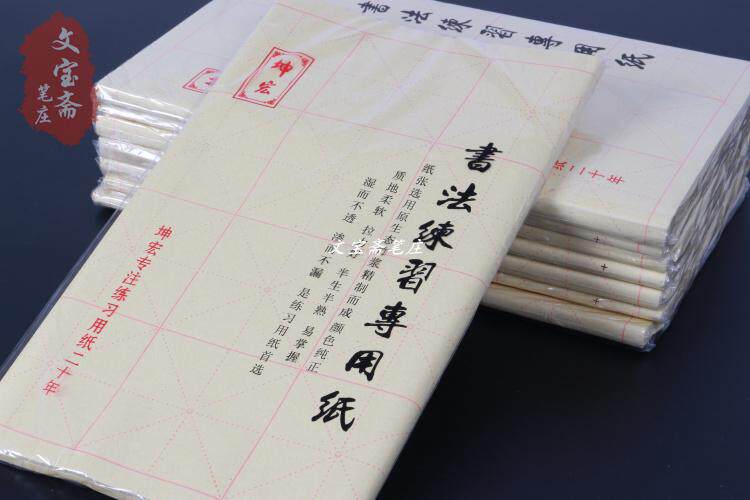 文宝斋
笔庄
坤宏
書法練習專用紙
纸张选用原生态 浆精制而成 颜色纯正
质地柔软 拉 半生半熟 易掌握
湿而不透 渗而不漏 是练习用纸首选
坤宏专注练习用纸二十年
文宝斋笔庄
書法練習專用紙
纸二十年